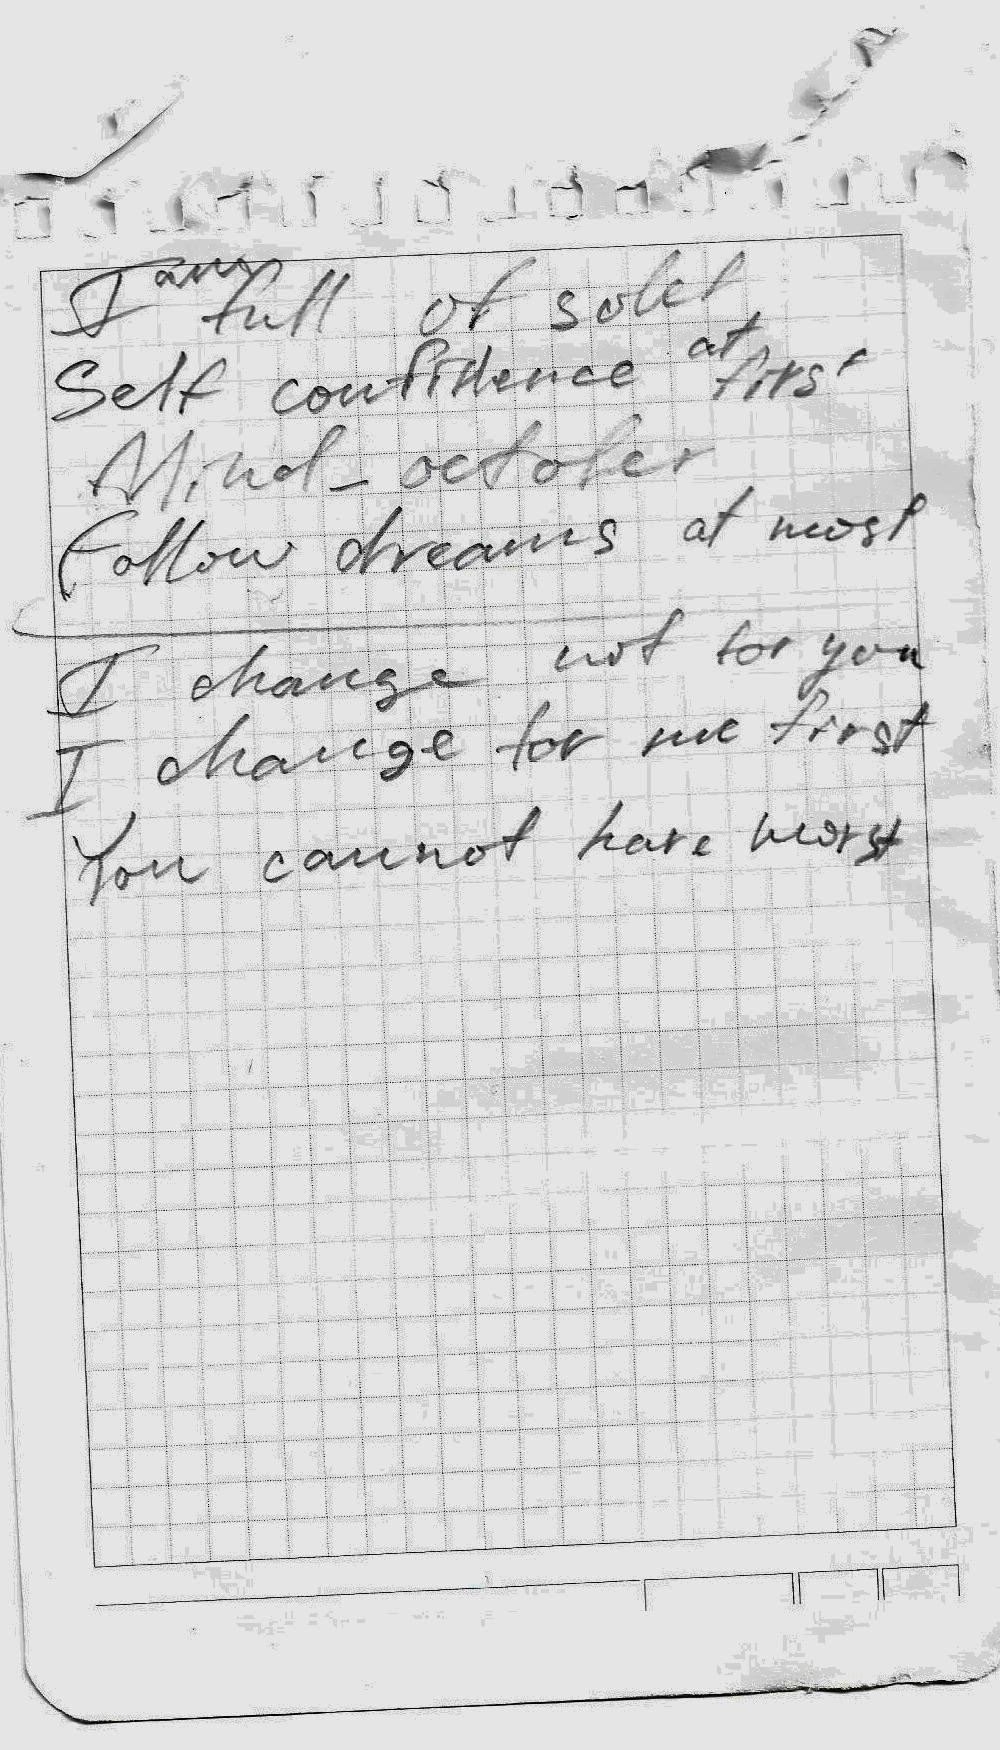 I am full of
Self confidence at first
Mind-october
Follow dreams at most
I change not for you
I change for me first
You cannot have worst